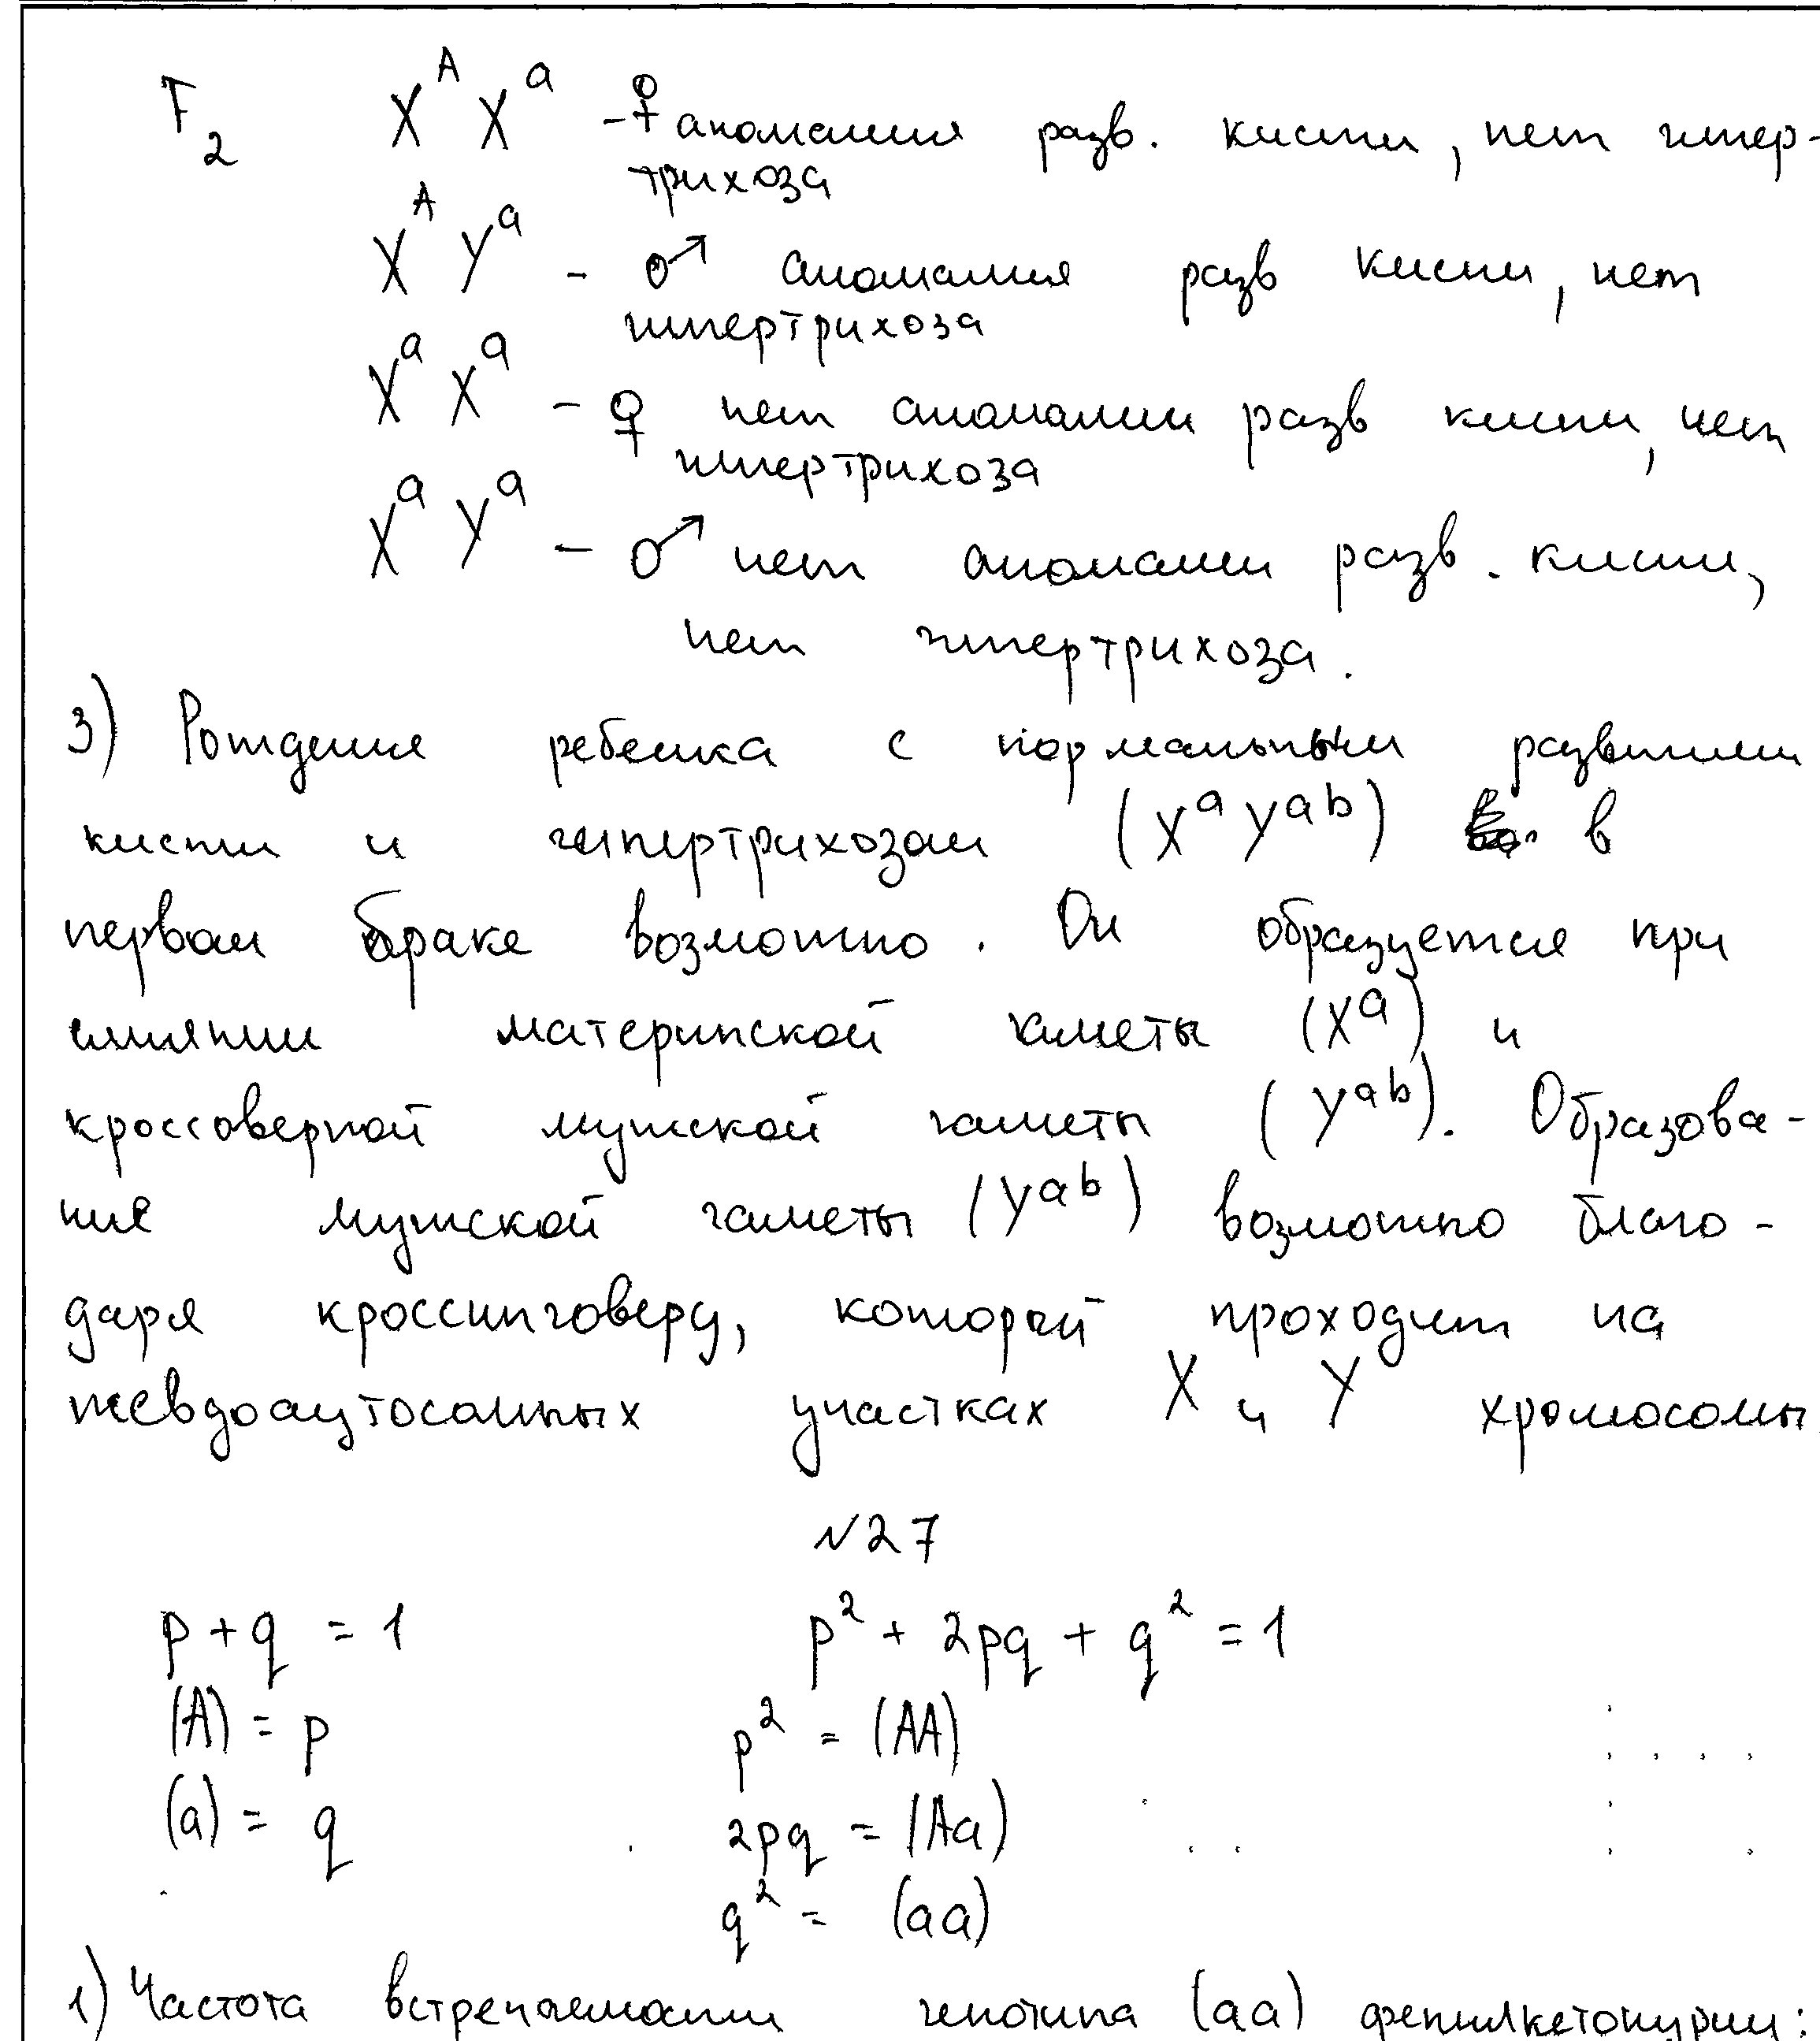 F₂ X^A X^a - ♀ аномалия разв. кисти, нет гипер-
трихоза
X^A Y^a - ♂ аномалия разв кисти, нет
гипертрихоза
X^a X^a - ♀ нет аномалии разв кисти, нет
гипертрихоза
X^a Y^a - ♂ нет аномалии разв. кисти,
нет гипертрихоза.
3) Рождение ребенка с нормальным развитием
кисти и гипертрихозом (X^a Y^ab) в
первом браке возможно. Он образуется при
слиянии материнской гаметы (X^a) и
кроссоверной мужской гаметы (Y^ab). Образова-
ние мужской гаметы (Y^ab) возможно благо-
даря кроссинговеру, который проходит на
псевдоаутосомных участках X и Y хромосомы.
№27
p + q = 1 p² + 2pq + q² = 1
(A) = p p² = (AA)
(a) = q 2pq = (Aa)
q² = (aa)
1) Частота встречаемости генотипа (aa) фенилкетонурии: